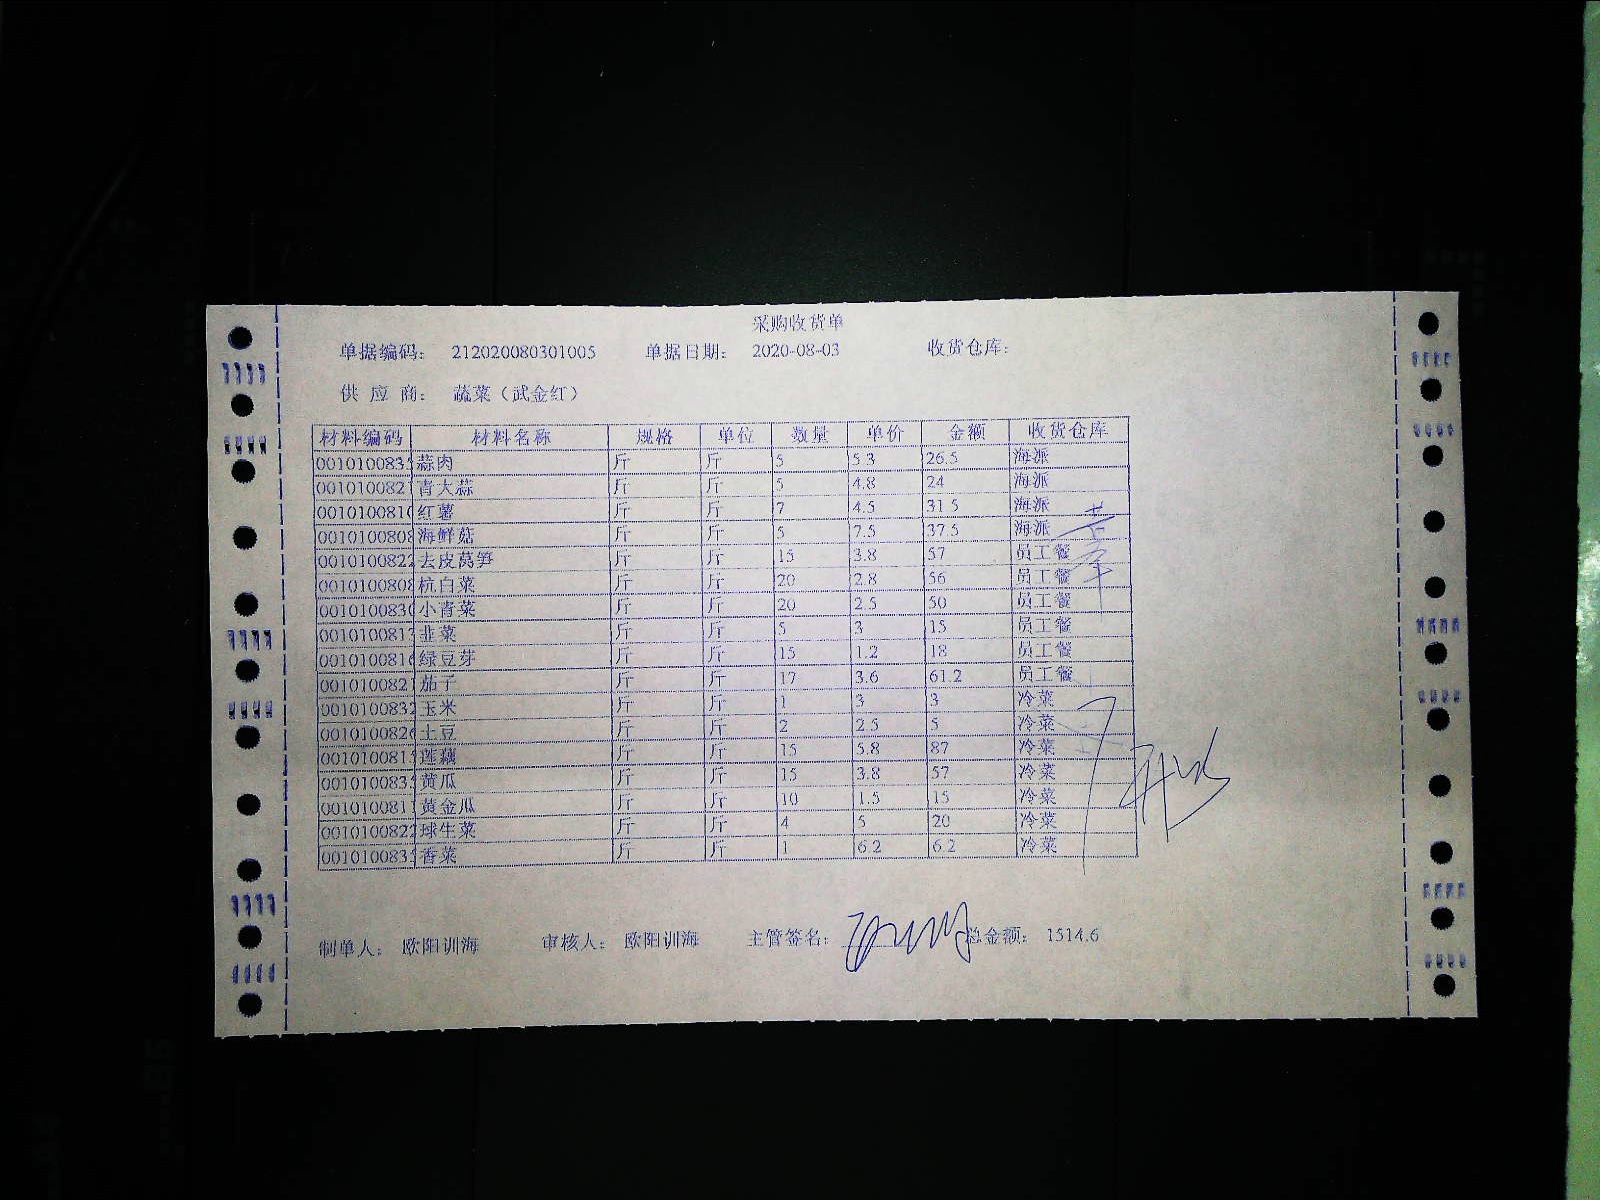 采购收货单
单据编码： 212020080301005 单据日期： 2020-08-03 收货仓库：
供 应 商： 蔬菜（武金红）
材料编码 材料名称 规格 单位 数量 单价 金额 收货仓库
0010100835 蒜肉 斤 斤 5 5.3 26.5 海派
0010100821 青大蒜 斤 斤 5 4.8 24 海派
0010100810 红薯 斤 斤 7 4.5 31.5 海派
0010100808 海鲜菇 斤 斤 5 7.5 37.5 海派
0010100822 去皮莴笋 斤 斤 15 3.8 57 员工餐
0010100808 杭白菜 斤 斤 20 2.8 56 员工餐
0010100830 小青菜 斤 斤 20 2.5 50 员工餐
0010100813 韭菜 斤 斤 5 3 15 员工餐
0010100816 绿豆芽 斤 斤 15 1.2 18 员工餐
0010100821 茄子 斤 斤 17 3.6 61.2 员工餐
0010100832 玉米 斤 斤 1 3 3 冷菜
0010100826 土豆 斤 斤 2 2.5 5 冷菜
0010100815 莲藕 斤 斤 15 5.8 87 冷菜
0010100833 黄瓜 斤 斤 15 3.8 57 冷菜
0010100811 黄金瓜 斤 斤 10 1.5 15 冷菜
0010100822 球生菜 斤 斤 4 5 20 冷菜
0010100833 香菜 斤 斤 1 6.2 6.2 冷菜
制单人： 欧阳训海 审核人： 欧阳训海 主管签名： 总金额： 1514.6